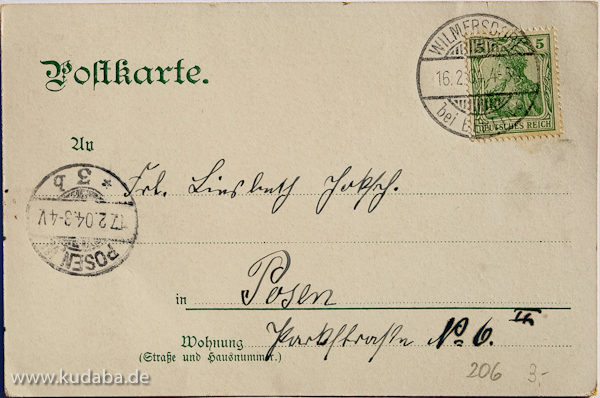 Postkarte.
WILMERSDORF
16.2.04. 4-5
bei B
5
DEUTSCHES REICH
An
Frl. Liesbeth
* 3 b
17.2.04. 3-4 V
POSEN
in Posen
Wohnung Parkstraße No 6. II
(Straße und Hausnummer.)
206 3,-
www.kudaba.de